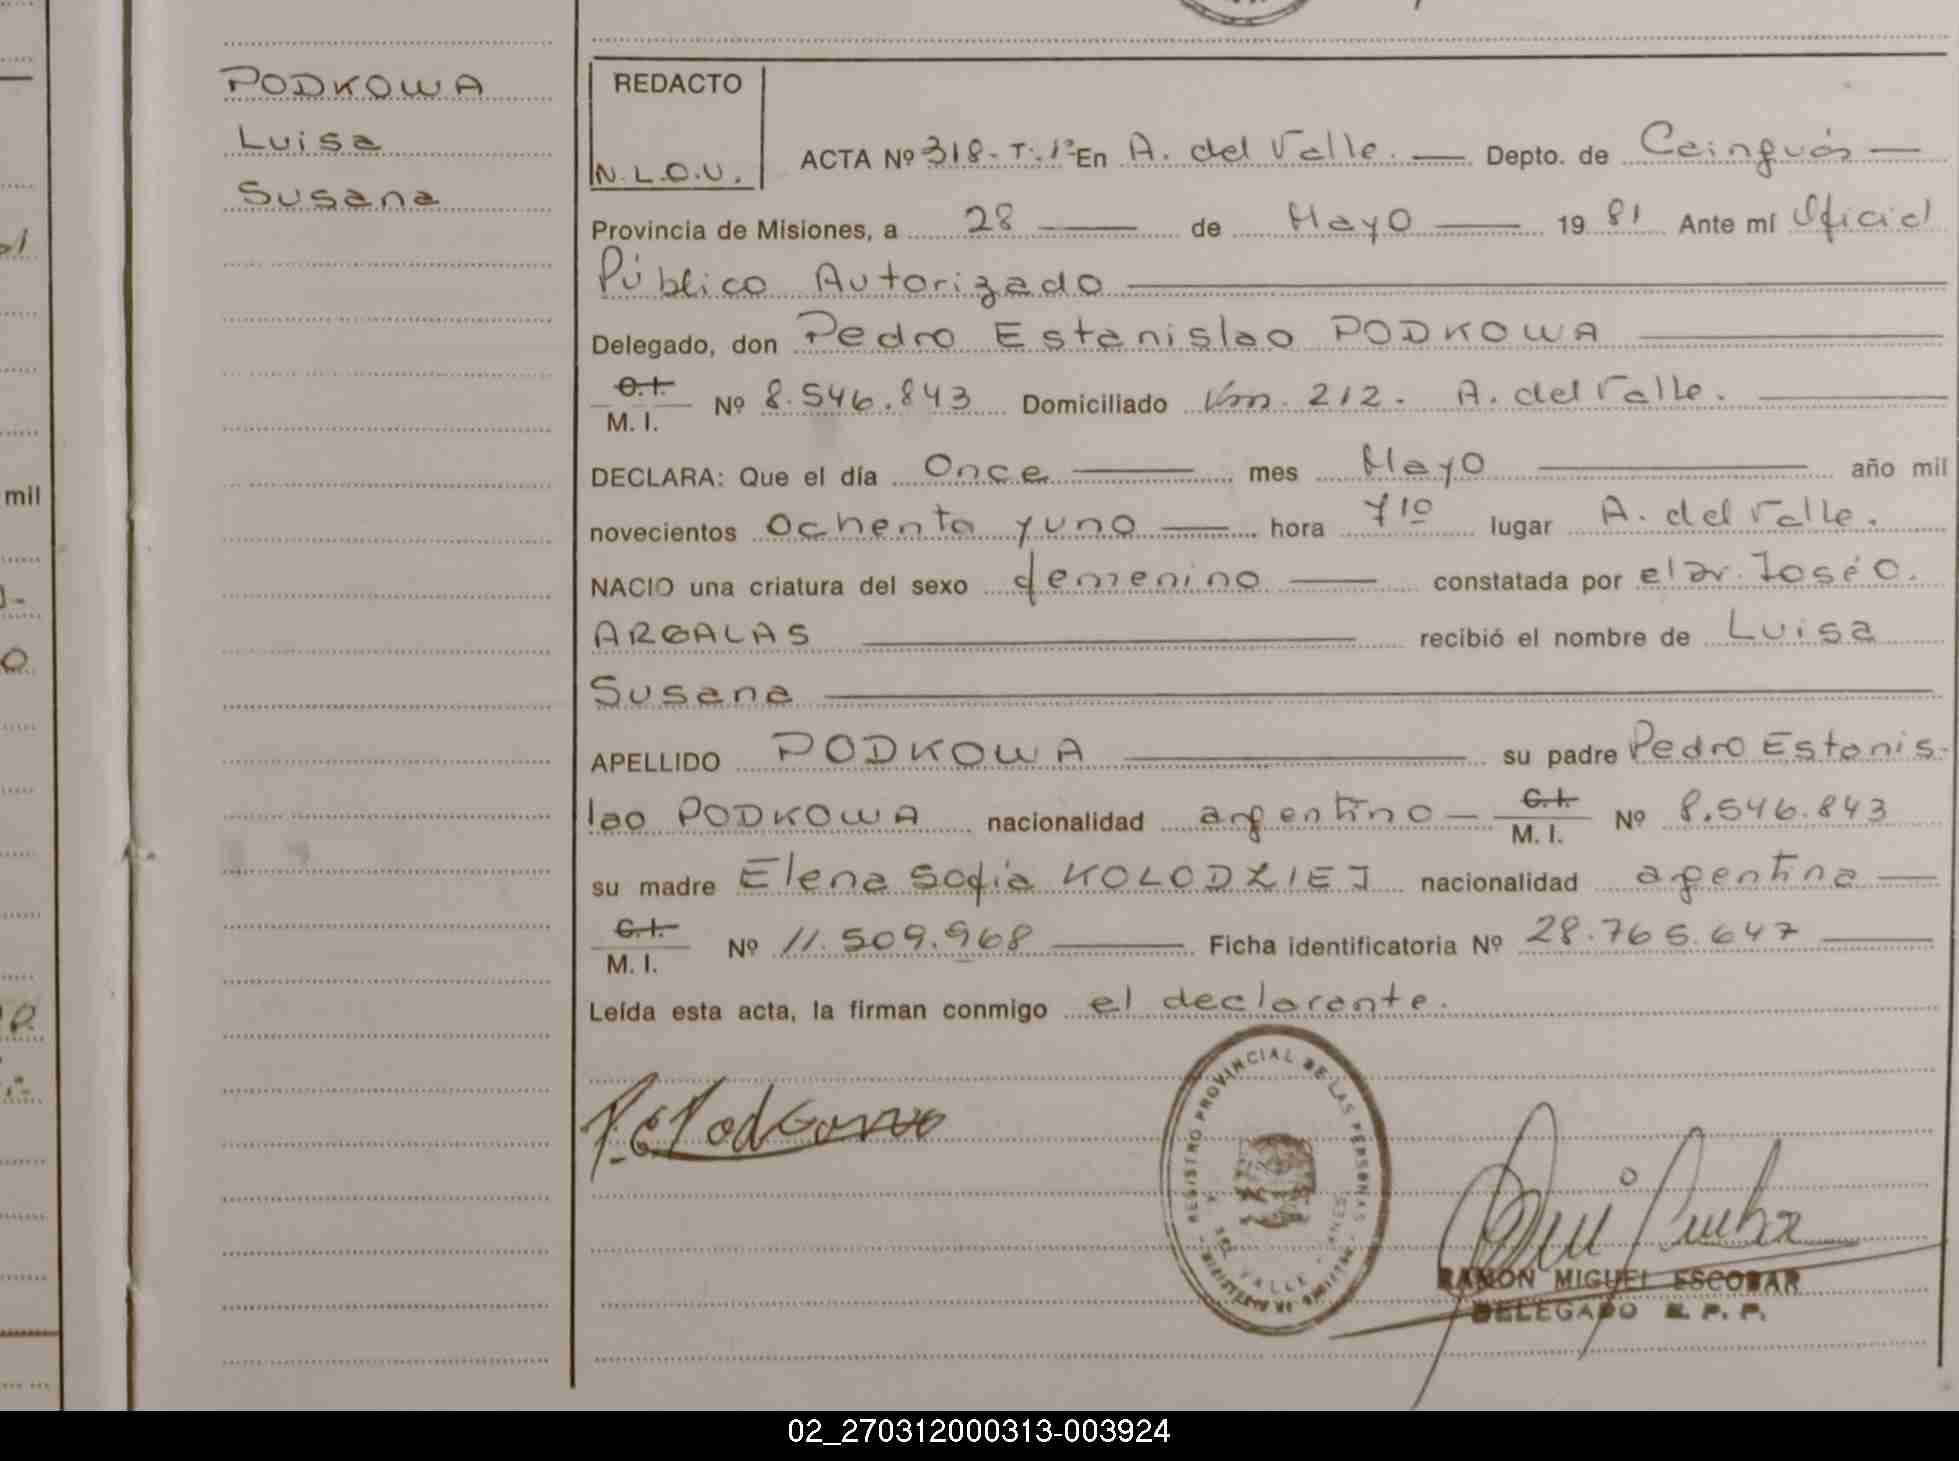 PODKOWA
Luisa
Susana
REDACTO
N.L.O.U.
ACTA Nº 318-T.1º En A. del Valle. Depto. de Cainguás
Provincia de Misiones, a 28 de Mayo 1981 Ante mí Oficial
Público Autorizado
Delegado, don Pedro Estanislao PODKOWA
C.I.
M. I. Nº 8.546.843 Domiciliado Km. 212. A. del Valle.
DECLARA: Que el día Once mes Mayo año mil
novecientos Ochenta y uno hora 7 10 lugar A. del Valle.
NACIO una criatura del sexo femenino constatada por el Dr. José O.
ARGALAS recibió el nombre de Luisa
Susana
APELLIDO PODKOWA su padre Pedro Estanis-
lao PODKOWA nacionalidad argentino C.I. M. I. Nº 8.546.843
su madre Elena Sofia KOLODZIEJ nacionalidad argentina
C.I.
M. I. Nº 11.509.968 Ficha identificatoria Nº 28.765.647
Leída esta acta, la firman conmigo el declarante.
REGISTRO PROVINCIAL DE LAS PERSONAS
DEL VALLE
RAMON MIGUEL ESCOBAR
DELEGADO R. P. P.
mil
02_270312000313-003924